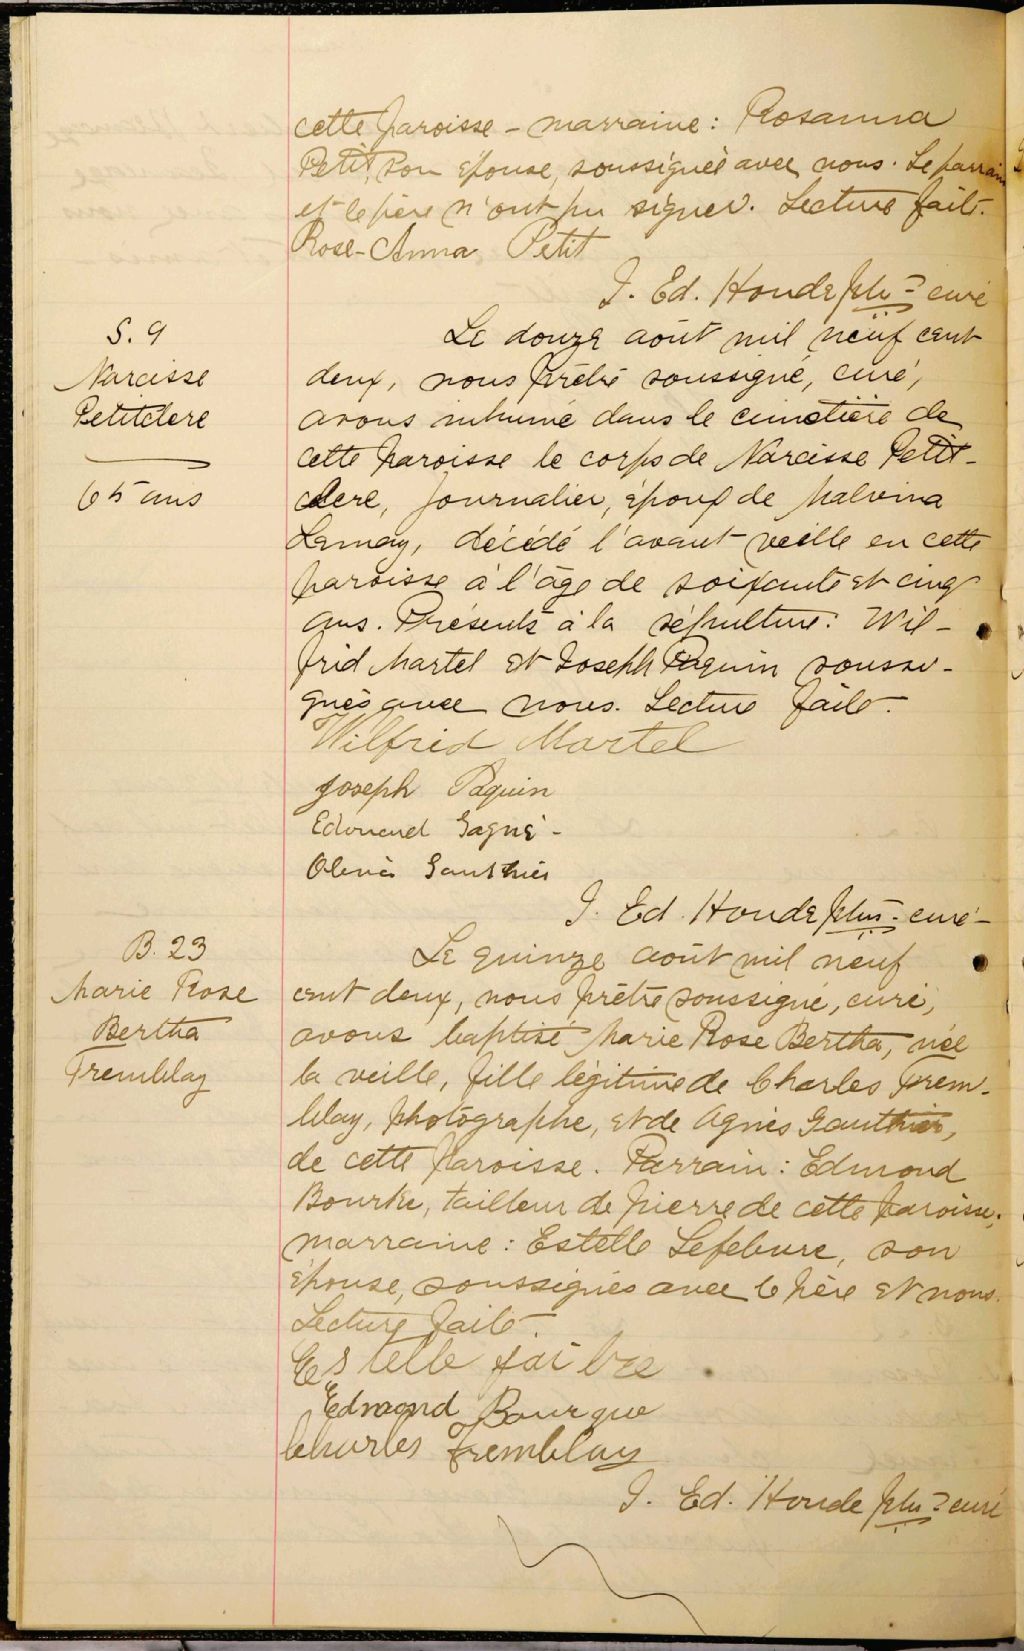 cette paroisse - marraine : Rosanna
Petit, son épouse, soussignée avec nous. Le parrain
et le père n'ont pu signer. Lecture faite.
Rose-Anna Petit
J. Ed. Houde ptre curé
S. 9
Narcisse
Petitclerc
65 ans
Le douze août mil neuf cent
deux, nous prêtre soussigné, curé,
avons inhumé dans le cimetière de
cette paroisse le corps de Narcisse Petit-
clerc, journalier, époux de Malvina
Lemay, décédé l'avant-veille en cette
paroisse à l'âge de soixante et cinq
ans. Présents à la sépulture : Wil-
frid Martel et Joseph Paquin soussi-
gnés avec nous. Lecture faite.
Wilfrid Martel
Joseph Paquin
Edouard Gagné -
Gauthier
J. Ed. Houde ptre curé -
B. 23
Marie Rose
Bertha
Tremblay
Le quinze août mil neuf
cent deux, nous prêtre soussigné, curé,
avons baptisé Marie Rose Bertha, née
la veille, fille légitime de Charles Trem-
blay, photographe, et de Agnès Gauthier,
de cette paroisse. Parrain : Edmond
Bourke, tailleur de pierre de cette paroisse,
marraine : Estelle Lefebvre, son
épouse, soussignés avec le père et nous.
Lecture faite.
Estelle faibre
Edmond Bourque
Charles Tremblay
J. Ed. Houde ptre curé